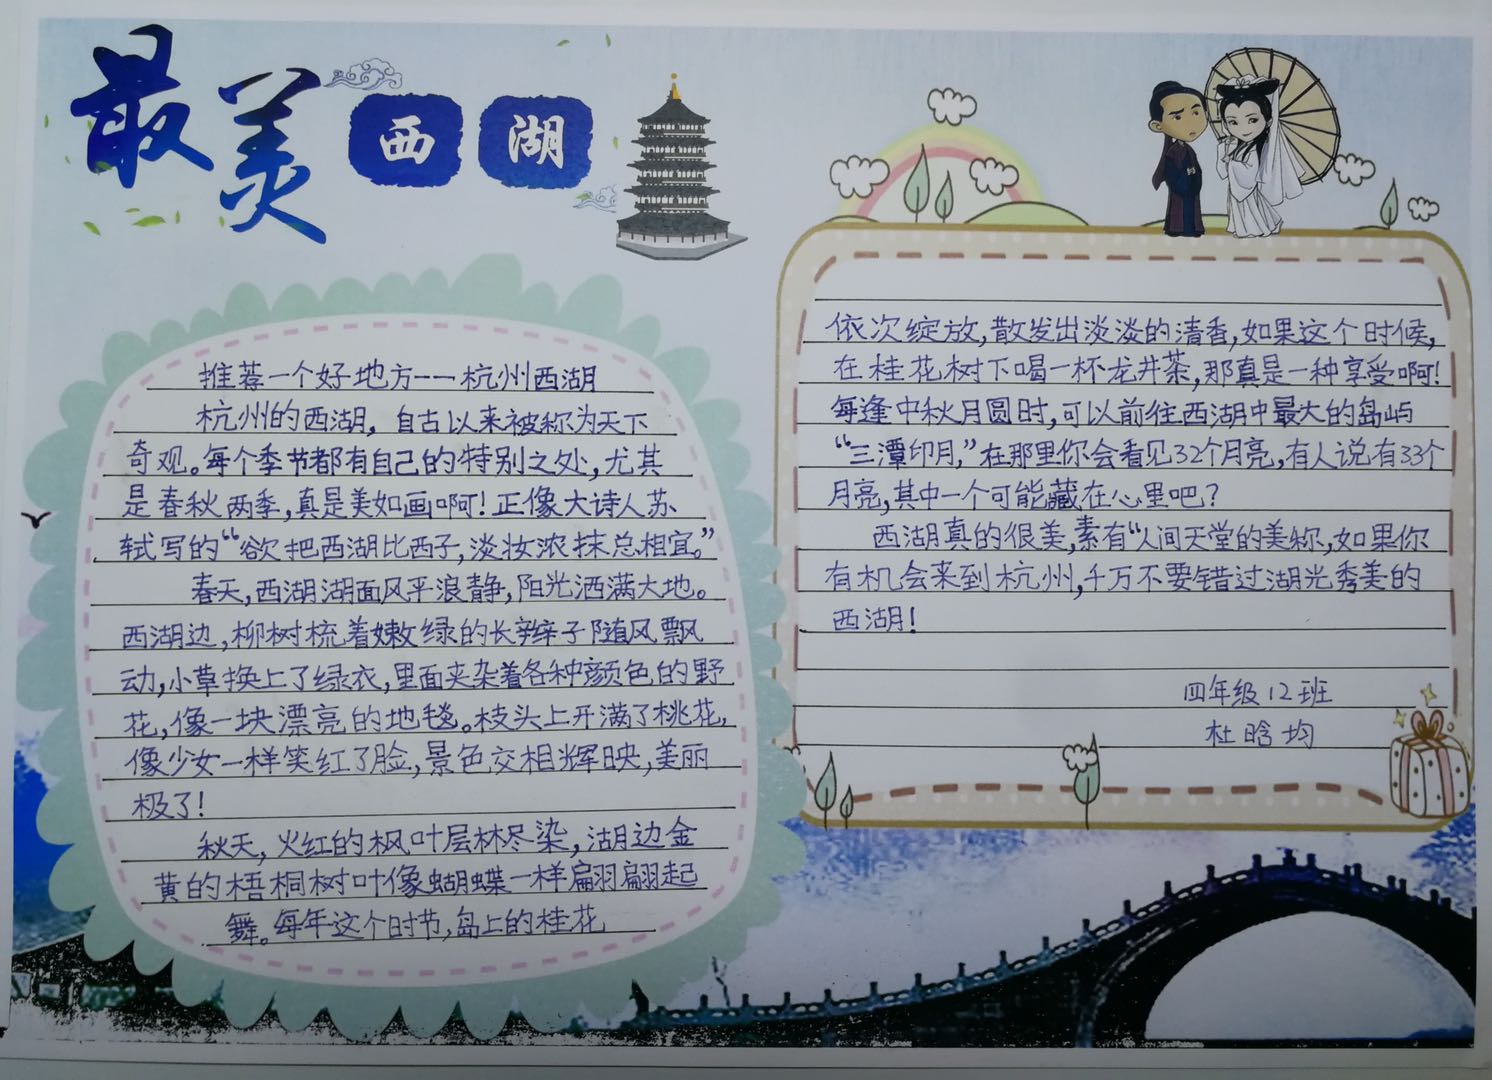 最美西湖
推荐一个好地方——杭州西湖
杭州的西湖，自古以来被称为天下
奇观。每个季节都有自己的特别之处，尤其
是春秋两季，真是美如画啊！正像大诗人苏
轼写的“欲把西湖比西子，淡妆浓抹总相宜。”
春天，西湖湖面风平浪静，阳光洒满大地。
西湖边，柳树梳着嫩绿的长辫子随风飘
动，小草换上了绿衣，里面夹杂着各种颜色的野
花，像一块漂亮的地毯。枝头上开满了桃花，
像少女一样笑红了脸，景色交相辉映，美丽
极了！
秋天，火红的枫叶层林尽染，湖边金
黄的梧桐树叶像蝴蝶一样翩翩起
舞。每年这个时节，岛上的桂花
依次绽放，散发出淡淡的清香，如果这个时候，
在桂花树下喝一杯龙井茶，那真是一种享受啊！
每逢中秋月圆时，可以前往西湖中最大的岛屿
“三潭印月，”在那里你会看见32个月亮，有人说有33个
月亮，其中一个可能藏在心里吧？
西湖真的很美，素有“人间天堂的美称，如果你
有机会来到杭州，千万不要错过湖光秀美的
西湖！
四年级12班
杜晗均